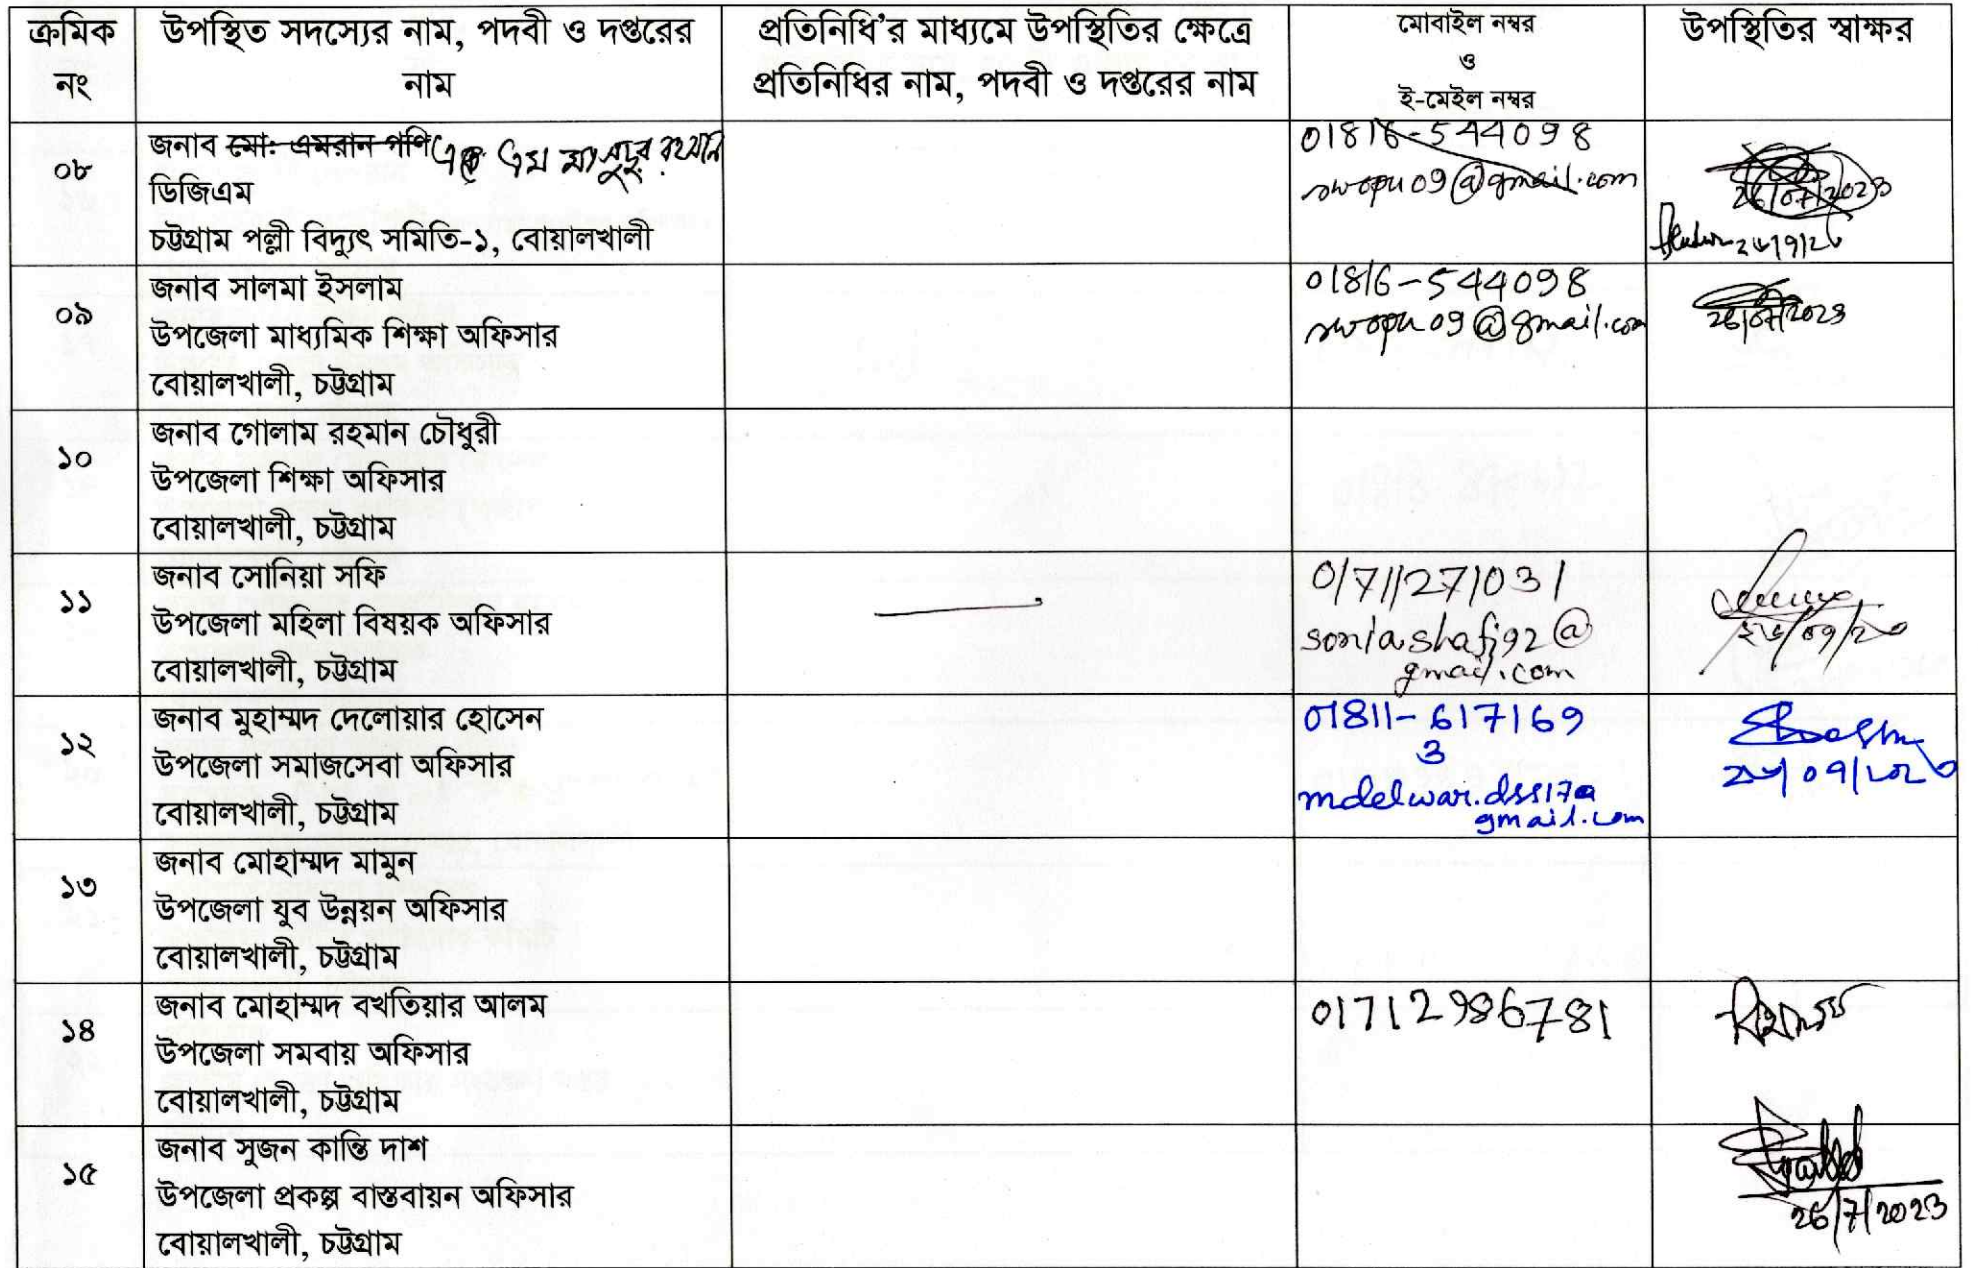 ক্রমিক নং
উপস্থিত সদস্যের নাম, পদবী ও দপ্তরের নাম
প্রতিনিধি’র মাধ্যমে উপস্থিতির ক্ষেত্রে
প্রতিনিধির নাম, পদবী ও দপ্তরের নাম
মোবাইল নম্বর
ও
ই-মেইল নম্বর
উপস্থিতির স্বাক্ষর
০৮
জনাব মো: এমরান গণি এম রহমান
ডিজিএম
চট্টগ্রাম পল্লী বিদ্যুৎ সমিতি-১, বোয়ালখালী
01816-544098
swopu09@gmail.com
26/07/2023
০৯
জনাব সালমা ইসলাম
উপজেলা মাধ্যমিক শিক্ষা অফিসার
বোয়ালখালী, চট্টগ্রাম
01816-544098
swopu09@gmail.com
26/07/2023
১০
জনাব গোলাম রহমান চৌধুরী
উপজেলা শিক্ষা অফিসার
বোয়ালখালী, চট্টগ্রাম
১১
জনাব সোনিয়া সফি
উপজেলা মহিলা বিষয়ক অফিসার
বোয়ালখালী, চট্টগ্রাম
01711271031
soniashafi92@
gmail.com
২৬/০৭/২৩
১২
জনাব মুহাম্মদ দেলোয়ার হোসেন
উপজেলা সমাজসেবা অফিসার
বোয়ালখালী, চট্টগ্রাম
01811-617169
3
mdelwar.dss17@
gmail.com
১৩
জনাব মোহাম্মদ মামুন
উপজেলা যুব উন্নয়ন অফিসার
বোয়ালখালী, চট্টগ্রাম
১৪
জনাব মোহাম্মদ বখতিয়ার আলম
উপজেলা সমবায় অফিসার
বোয়ালখালী, চট্টগ্রাম
01712986781
১৫
জনাব সুজন কান্তি দাশ
উপজেলা প্রকল্প বাস্তবায়ন অফিসার
বোয়ালখালী, চট্টগ্রাম
26/7/2023